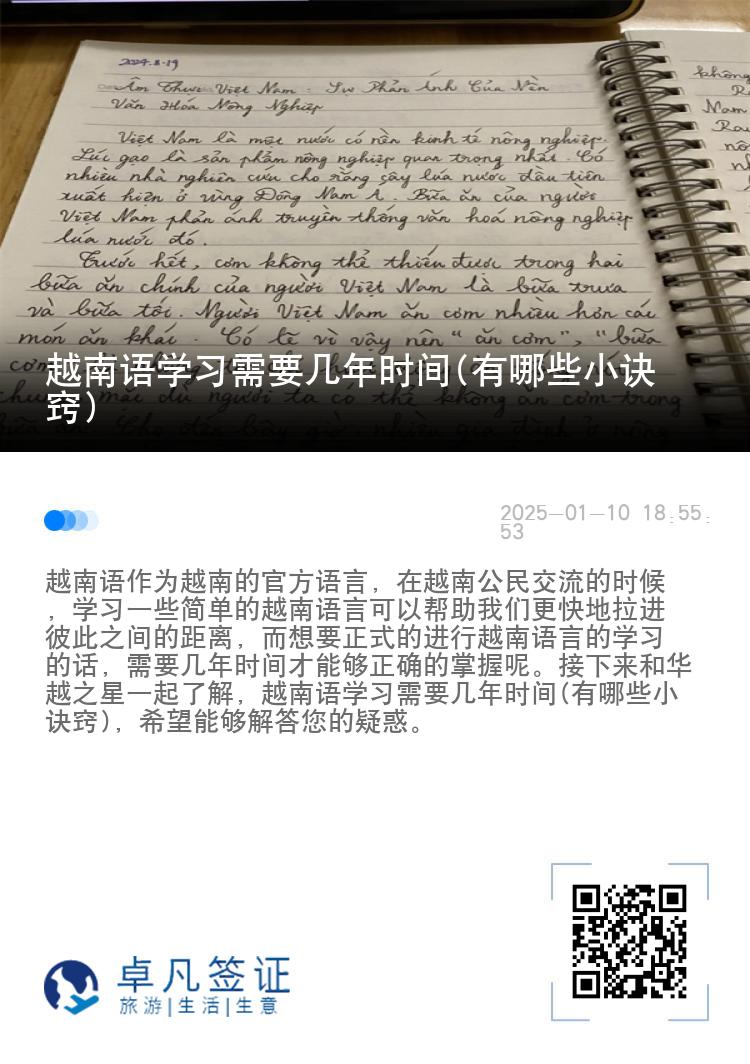 2024.8.19
Ẩm Thực Việt Nam : Sự Phản Ánh Của Nền
Văn Hóa Nông Nghiệp
Việt Nam là một nước có nền kinh tế nông nghiệp.
Lúc gạo là sản phẩm nông nghiệp quan trọng nhất. Có
nhiều nhà nghiên cứu cho rằng cây lúa nước đầu tiên
xuất hiện ở vùng Đông Nam Á. Bữa ăn của người
Việt Nam phản ánh truyền thống văn hoá nông nghiệp
lúa nước đó.
Trước hết, cơm không thể thiếu được trong hai
bữa ăn chính của người Việt Nam là bữa trưa
và bữa tối. Người Việt Nam ăn cơm nhiều hơn các
món ăn khác. Có lẽ vì vậy nên "ăn cơm", "bữa
cơm
mặc dù người ta có thể không ăn cơm trong
Cho đến bây giờ, nhiều gia đình ở nông
không
Nam
越南语学习需要几年时间(有哪些小诀
窍)
2025-01-10 18:55:
53
越南语作为越南的官方语言，在越南公民交流的时候
，学习一些简单的越南语言可以帮助我们更快地拉进
彼此之间的距离，而想要正式的进行越南语言的学习
的话，需要几年时间才能够正确的掌握呢。接下来和华
越之星一起了解，越南语学习需要几年时间(有哪些小
诀窍)，希望能够解答您的疑惑。
卓凡签证
旅游|生活|生意